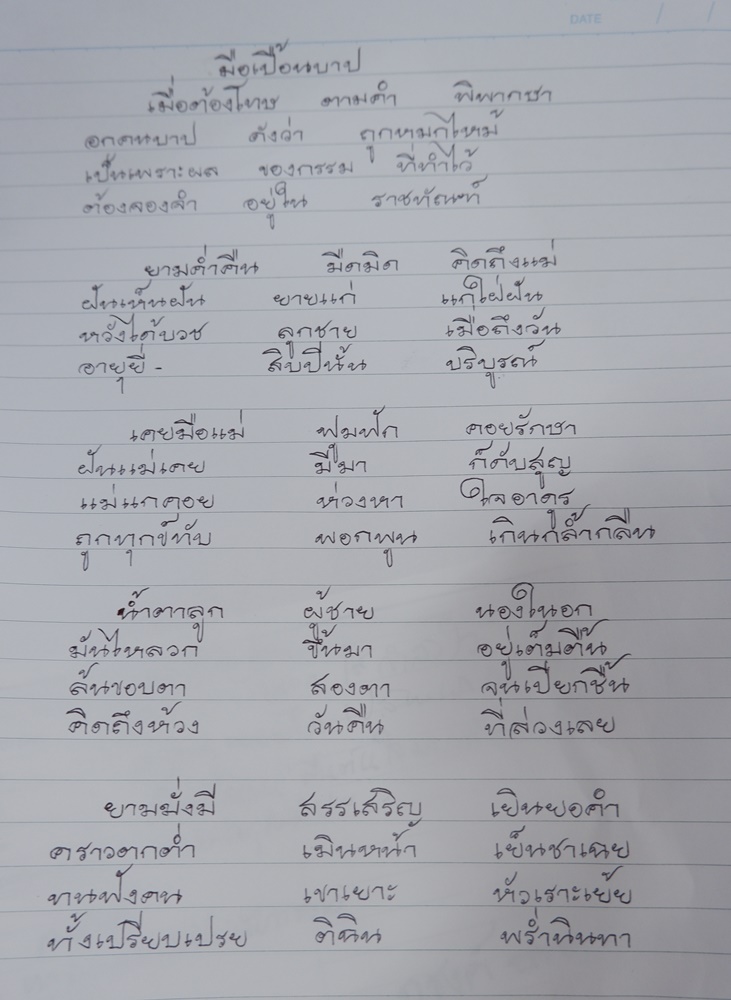 DATE / /
มือเปื้อนบาป
เมื่อต้องโทษ ตามคำ พิพากษา
อกคนบาป ดังว่า ถูกหมกไหม้
เป็นเพราะผล ของกรรม ที่ทำไว้
ต้องจองจำ อยู่ใน ราชทัณฑ์
ยามค่ำคืน มืดมิด คิดถึงแม่
ฝันเห็นฝัน ยายแก่ แกใฝ่ฝัน
หวังได้บวช ลูกชาย เมื่อถึงวัน
อายุยี่ - สิบปีนั้น บริบูรณ์
เคยมือแม่ ฟูมฟัก คอยรักษา
ฝันแม่เคย มีมา ก็ดับสูญ
แม่แกคอย ห่วงหา ใจอาดูร
ถูกทุกข์ทับ พอกพูน เกินกล้ำกลืน
น้ำตาลูก ผู้ชาย นองในอก
มันไหลวก ขึ้นมา อยู่เต็มตื้น
ล้นขอบตา สองตา จนเปียกชื้น
คิดถึงห้วง วันคืน ที่ล่วงเลย
ยามมั่งมี สรรเสริญ เยินยอคำ
คราวตกต่ำ เมินหน้า เย็นชาเฉย
ทนฟังคน เขาเยาะ หัวเราะเย้ย
ทั้งเปรียบเปรย ติฉิน พร่ำนินทา